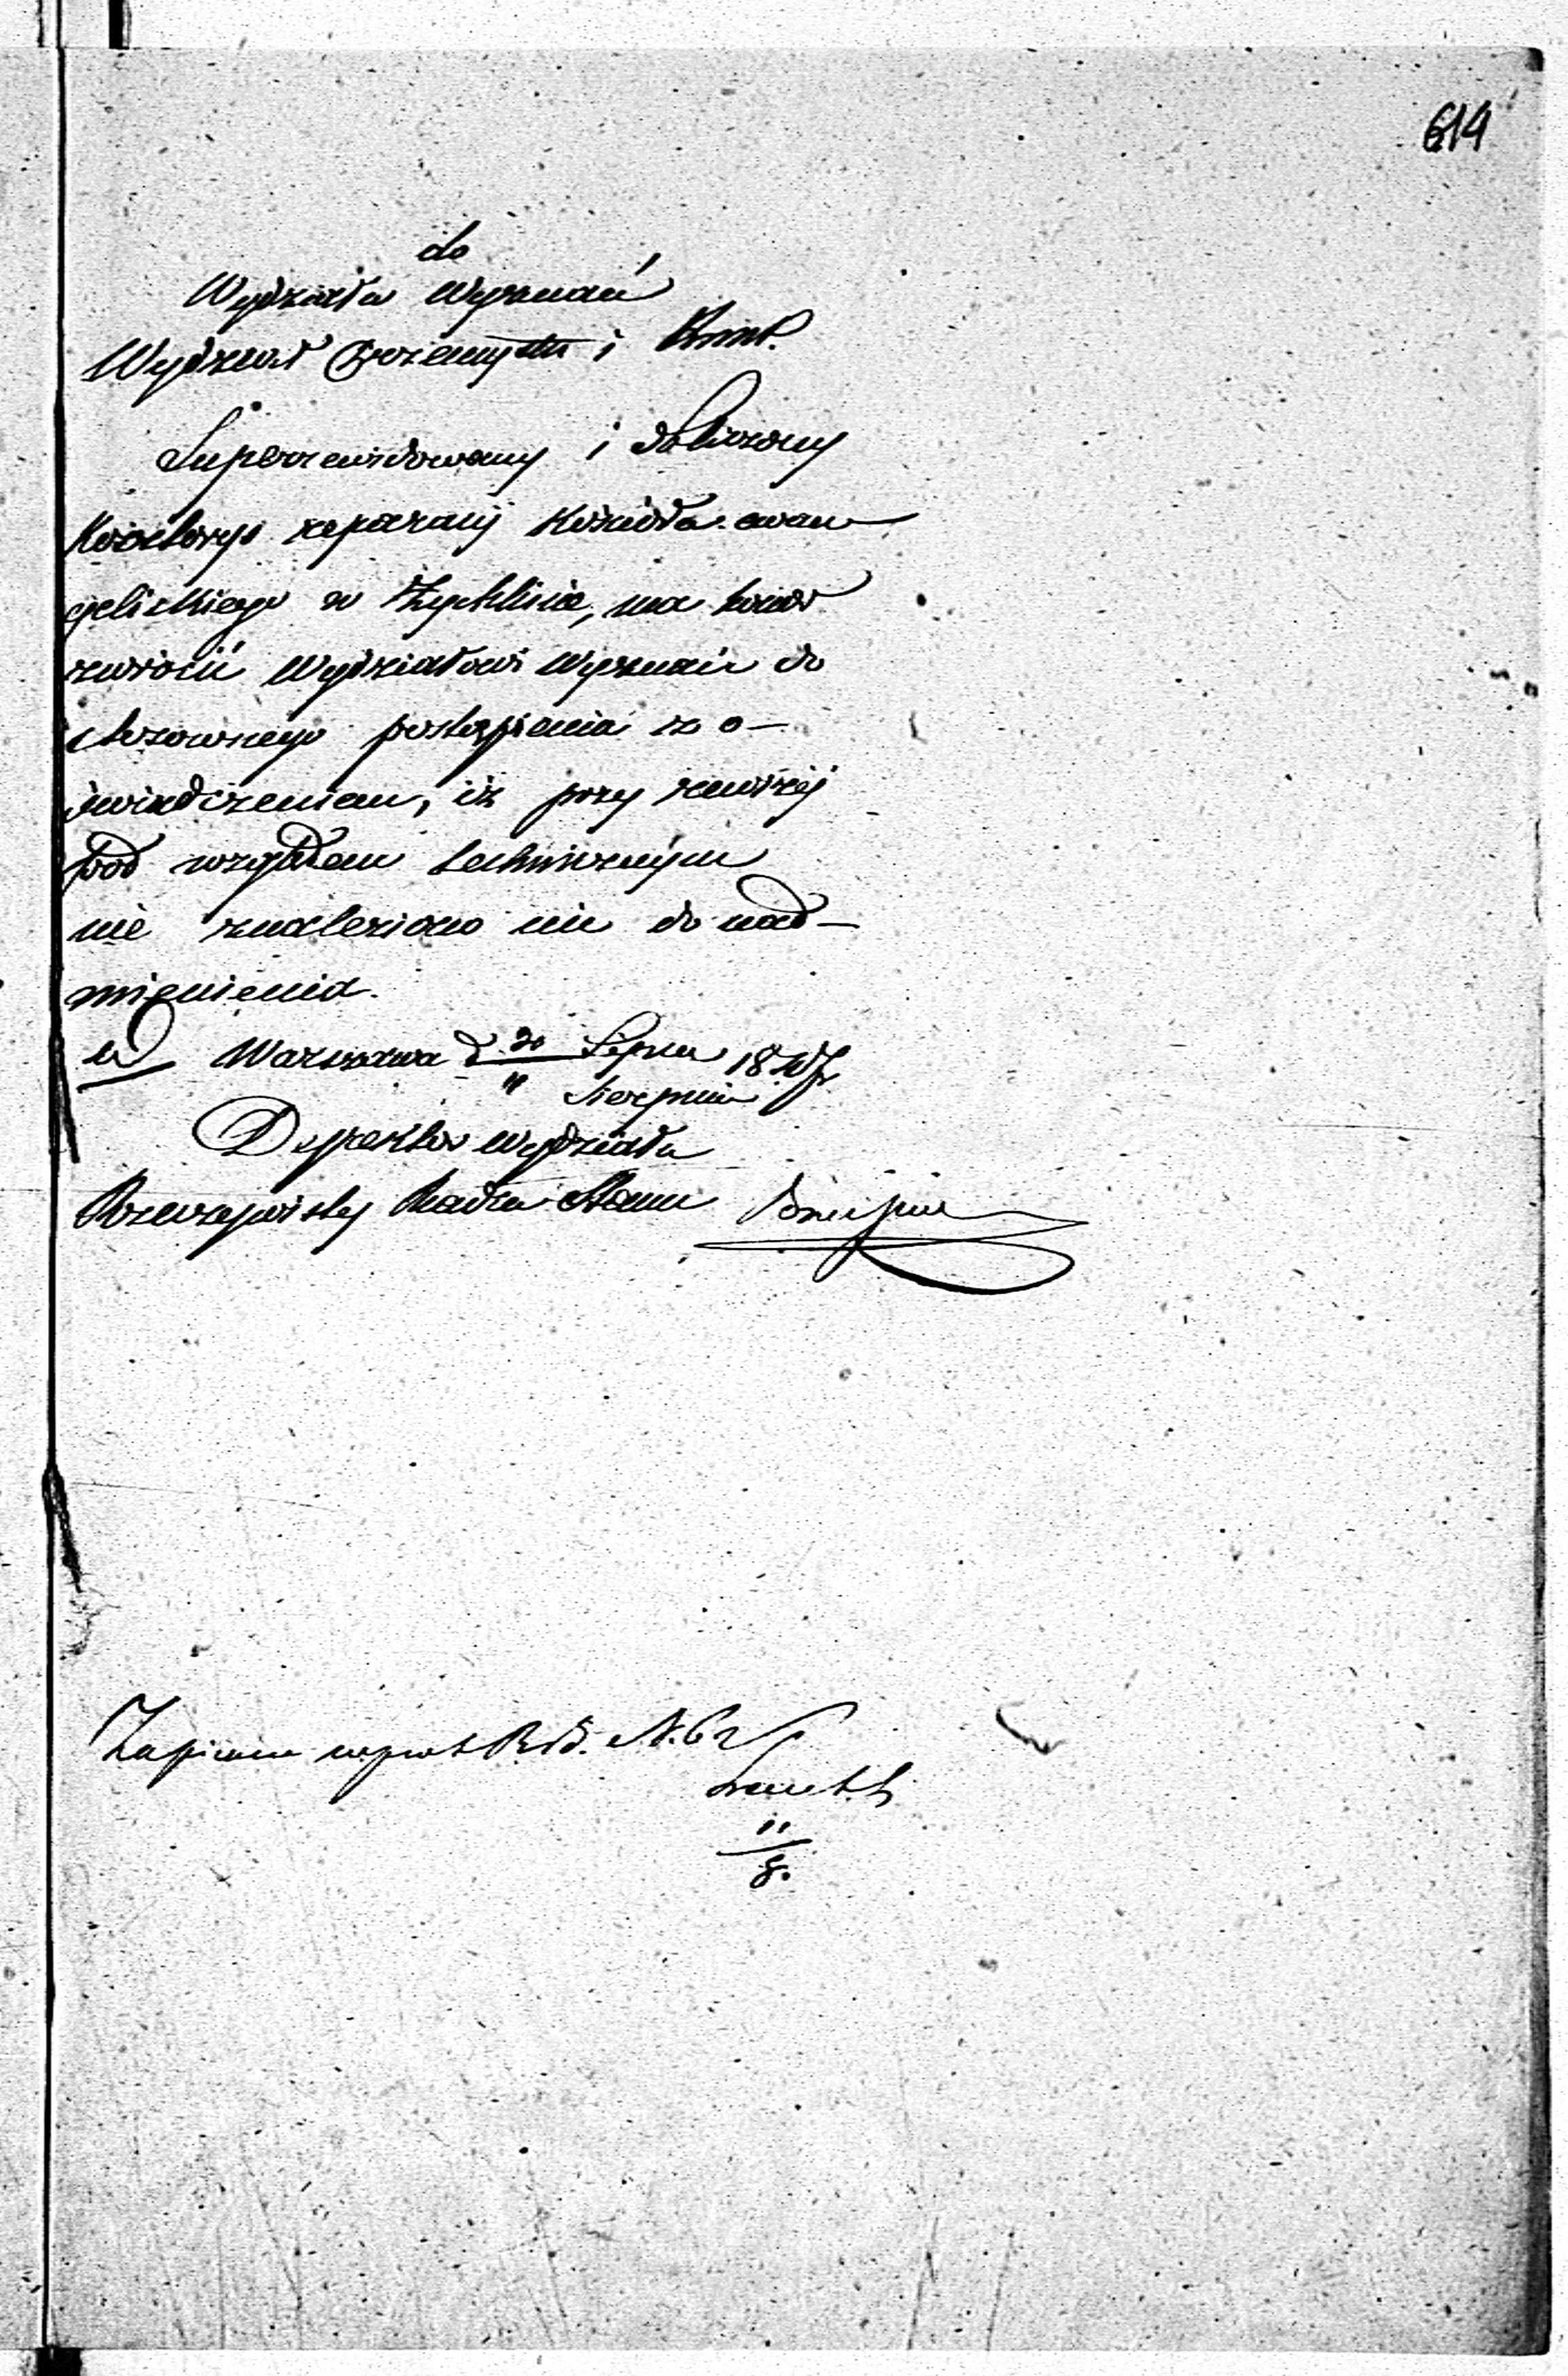 614
do
Wydziału Wyznań
Wydział Przemysłu i Kunsz.
Superrewidowany i obliczony
Kosztorys reparacij Kościoła ewan
gelickiego w Żychlinie, ma honor
zwrócić Wydziałowi Wyznań do
stosownego postąpienia z o-
świadczeniem, iż przy rewizij
pod względem technicznym
nie znaleziono nic do nad-
mienienia.
Warszawa d. 30 Lipca 1847
11 Sierpnia
Dyrektor Wydziału
Rzeczywisty Radca Stanu
Zapisano w prot R. B. N. 62
11
8.